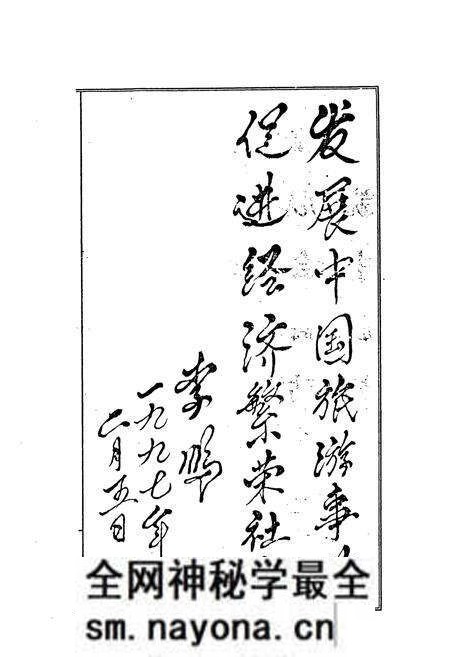 发展中国旅游事
促进经济繁荣社
李鹏
一九九七年
二月五日
全网神秘学最全
sm.nayona.cn